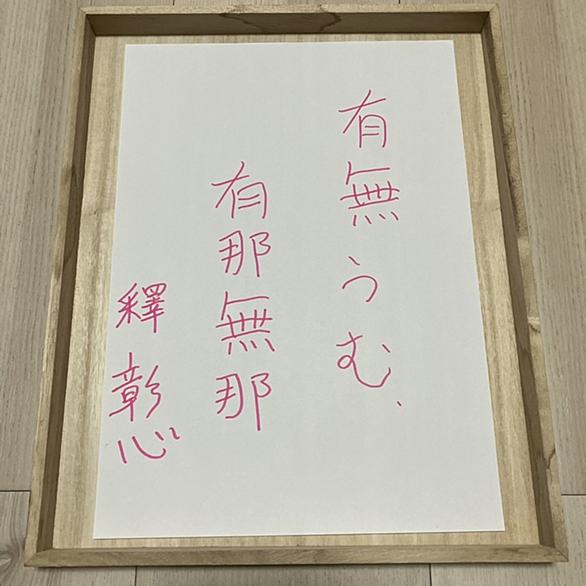 有無うむ、
有那無那
釋彰心